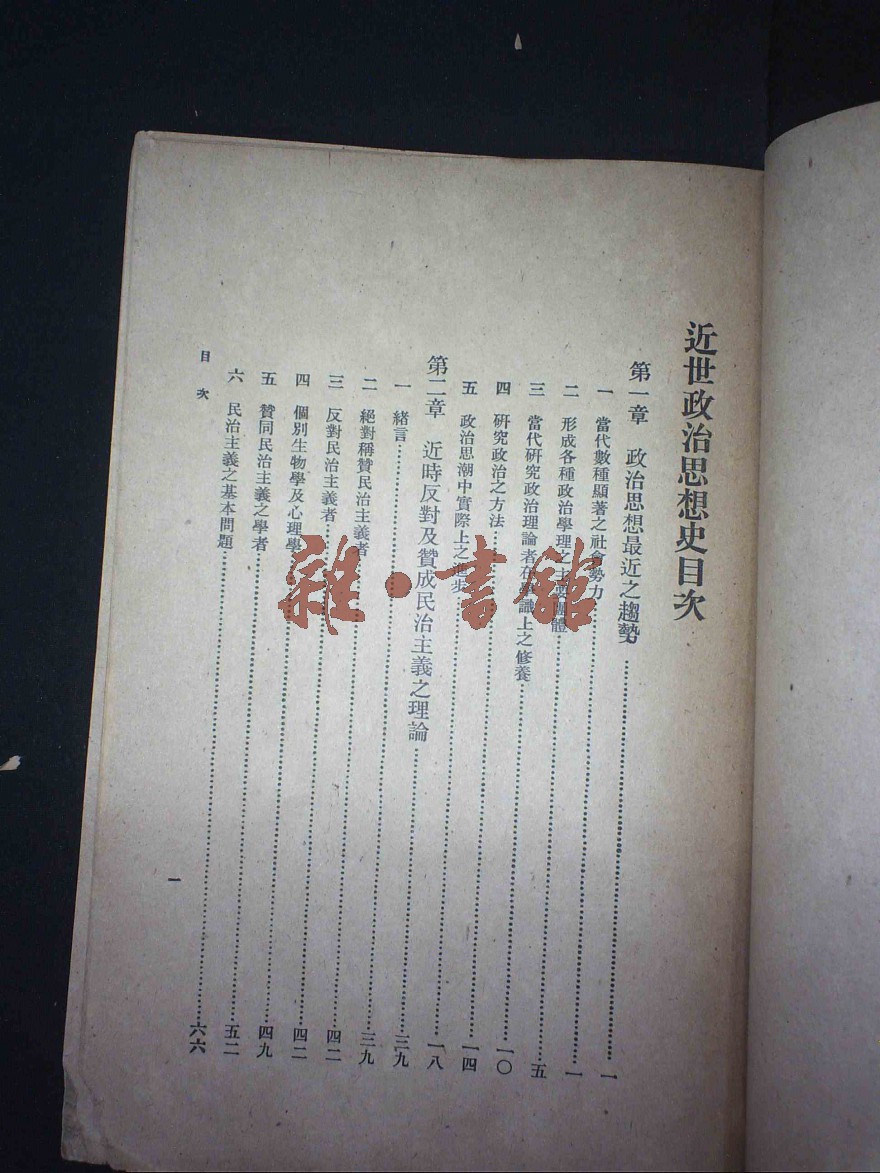 近世政治思想史目次
第一章 政治思想最近之趨勢……一
一 當代數種顯著之社會勢力……一
二 形成各種政治學理之主要團體……五
三 當代研究政治理論者在學識上之修養……一〇
四 研究政治之方法……一四
五 政治思潮中實際上之進步……一八
第二章 近時反對及贊成民治主義之理論……三九
一 緒言……三九
二 絕對稱贊民治主義者……四二
三 反對民治主義者……四二
四 個別生物學及心理學……四九
五 贊同民治主義之學者……五二
六 民治主義之基本問題……六六
目次
一
雜·書館